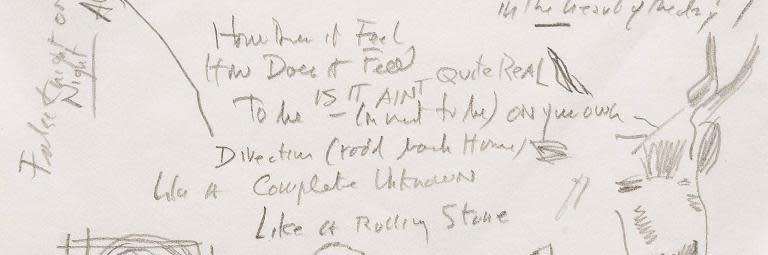 in the
How Does it Feel
How Does it Feel Quite ReaL
IS IT AINT
To be (or not to be) on your own
Direction (road back Home)
Like a Complete Unknown
Like a Rolling Stone
False Knight on
Night